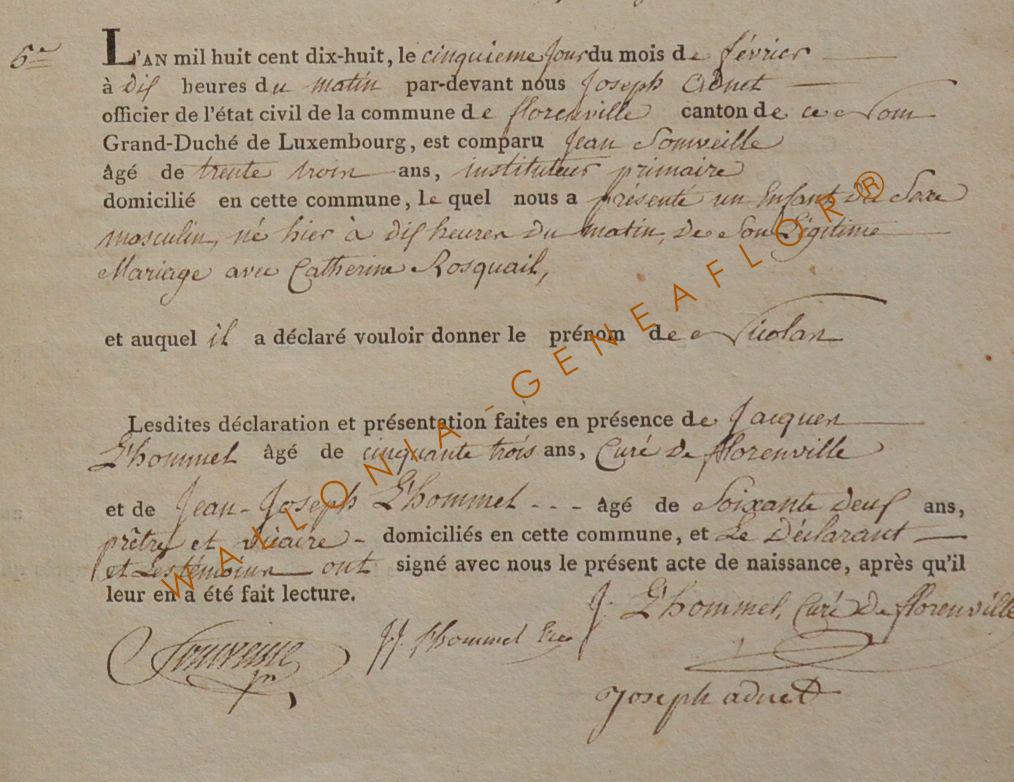 6e
L'AN mil huit cent dix-huit, le cinquieme jour du mois de février
à dix heures du matin par-devant nous Joseph Adnet
officier de l'état civil de la commune de florenville canton de ce Nom
Grand-Duché de Luxembourg, est comparu Jean
âgé de trente trois ans, instituteur primaire
domicilié en cette commune, le quel nous a présenté un Enfant du Sexe
masculin, né hier à dix heures du matin, de Son Légitime
Mariage avec Catherine Rosquail,
et auquel il a déclaré vouloir donner le prénom de Nicolas
Lesdites déclaration et présentation faites en présence de Jacques
L'hommel âgé de cinquante trois ans, Curé de florenville
et de Jean-Joseph L'hommel - - - âgé de Soixante deux ans,
prêtre et vicaire - domiciliés en cette commune, et Le Déclarant
et Les témoins ont signé avec nous le présent acte de naissance, après qu'il
leur en a été fait lecture.
J. L'hommel, Curé de florenville
J.J. l'hommel
Joseph adnet
WALLONIA-GENEAFLOR®